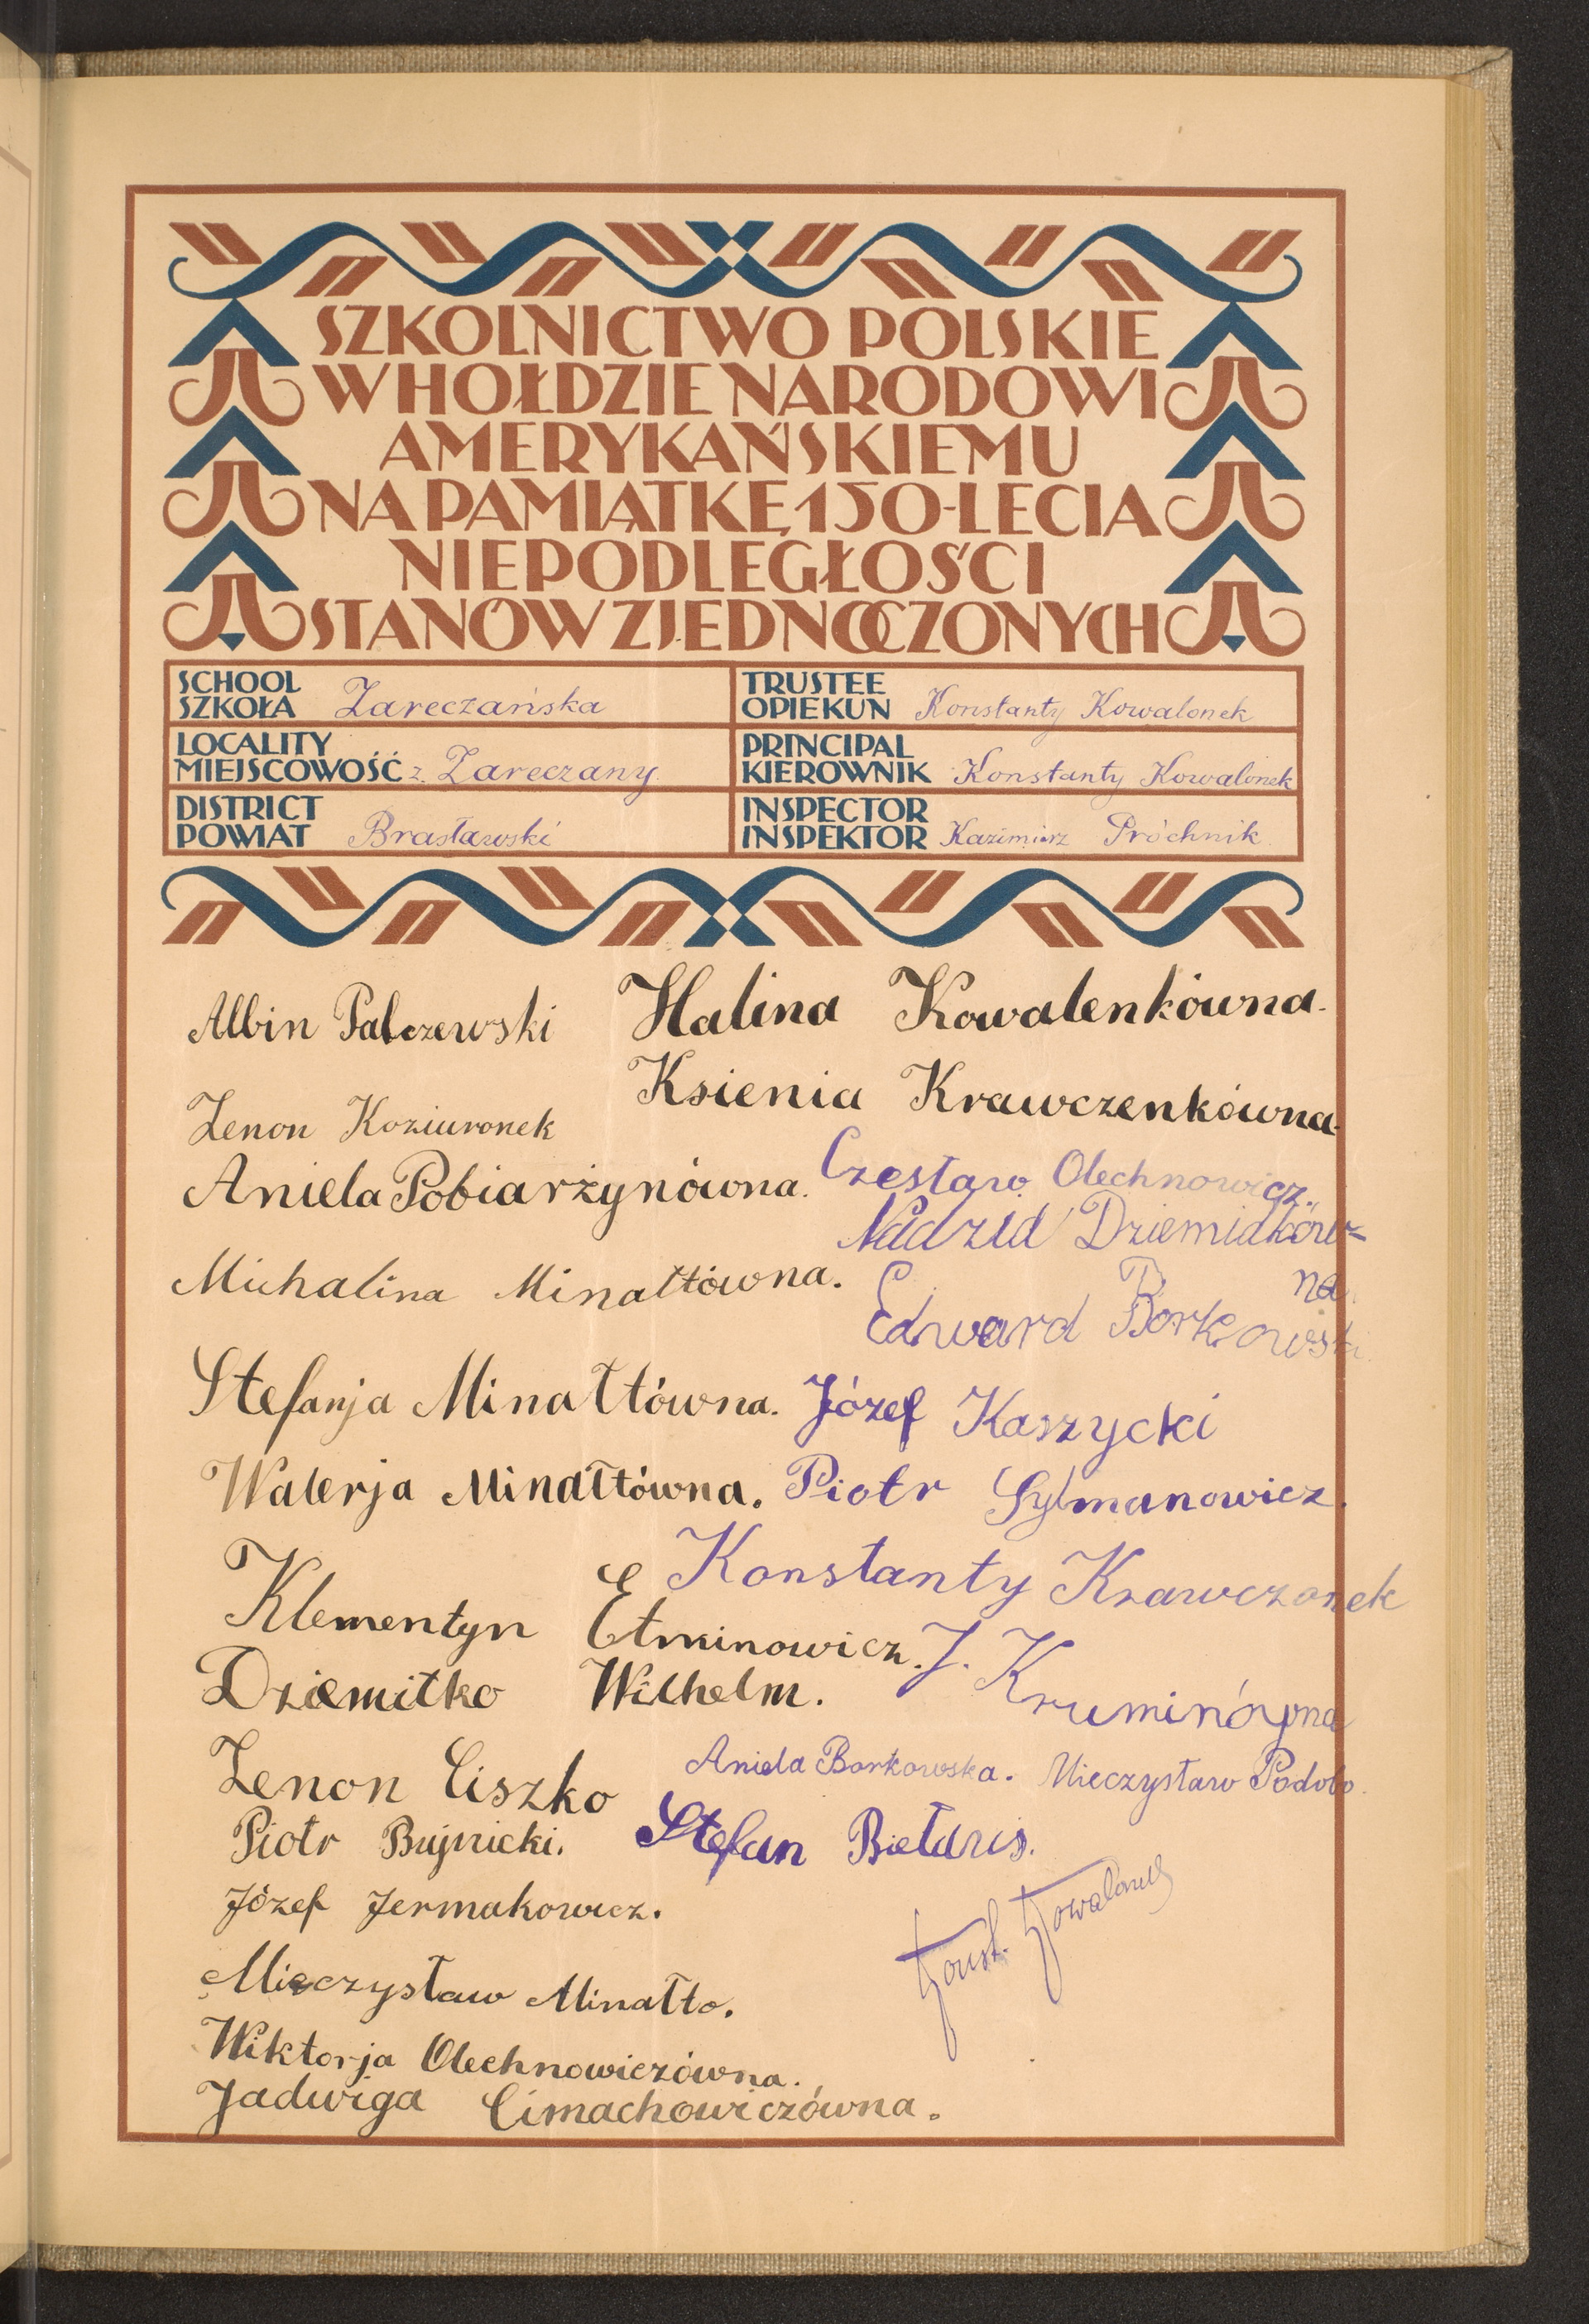 SZKOLNICTWO POLSKIE
W HOŁDZIE NARODOWI
AMERYKAŃSKIEMU
NA PAMIĄTKĘ 150-LECIA
NIEPODLEGŁOŚCI
STANÓW ZJEDNOCZONYCH
SCHOOL
SZKOŁA Zareczańska
TRUSTEE
OPIEKUN Konstanty Kowalonek
LOCALITY
MIEJSCOWOŚĆ z. Zareczany
PRINCIPAL
KIEROWNIK Konstanty Kowalonek
DISTRICT
POWIAT Brasławski
INSPECTOR
INSPEKTOR Kazimierz Próchnik
Albin Palczewski
Halina Kowalenkówna.
Ksienia Krawczenkówna.
Zenon Koziuronek
Aniela Pobiarżynówna.
Czesław Olechnowicz.
Nadzid Dziemidków=
na.
Michalina Minałtówna.
Edward Borkowski
Stefanja Minałtówna.
Józef Kaszycki
Walerja Minałtówna.
Piotr Sylmanowicz.
Konstanty Krawczonek
Klementyn Etminowicz.
J. Kruminówna
Dziemitko Wilhelm.
Zenon Ciszko
Aniela Borkowska. Mieczysław Podolo.
Piotr Bujnicki.
Stefan
Józef Jermakowicz.
Konst. Kowalonek
Mieczysław Minałto.
Wiktorja Olechnowiczówna.
Jadwiga Cimachowiczówna.